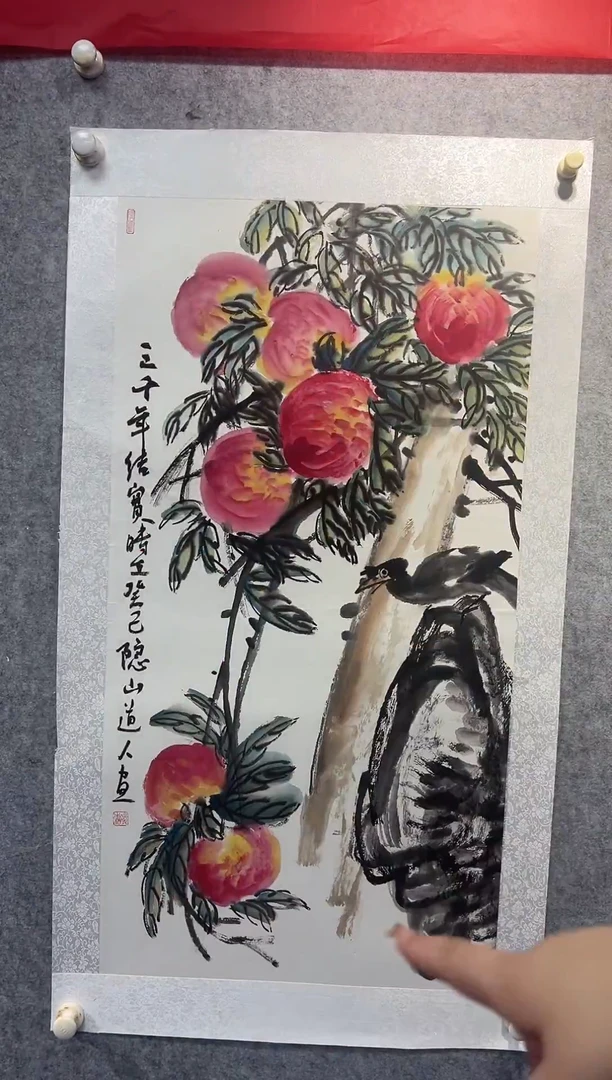 三千年结實時在癸巳隐山道人画